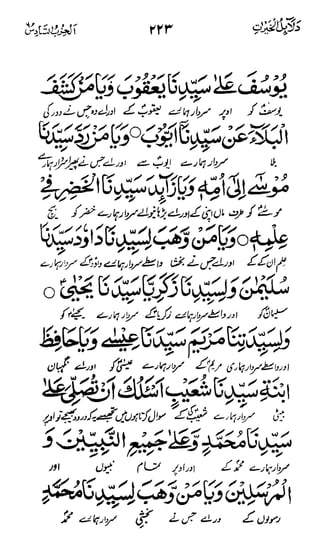 دلائل الخیرات ۲۲۳ الحزب السادس
يُوسُفَ عَلٰى سَيِّدِنَا يَعْقُوْبَ وَيَا مَنْ كَشَفَ
یوسف کو اوپر سردار ہمارے یعقوب کے اور اے وہ جس نے دور کی
الْبَلَآءَ عَنْ سَيِّدِنَا اَيُّوْبَ ○ وَيَا مَنْ رَدَّ سَيِّدَنَا
بلا سردار ہمارے ایوب سے اور اے جس نے پھیرا سردار ہمارے
مُوْسٰى اِلٰى اُمِّهٖ وَيَا زَآئِدَ سَيِّدِنَا الْخَضِرِ فِيْ
موسیٰ کو طرف ماں اپنی کے اور اے بڑھانیوالے سردار ہمارے خضر کو بیچ
عِلْمِهٖ ○ وَيَا مَنْ وَّهَبَ لِسَيِّدِنَا دَاوٗدَ سَيِّدَنَا
علم ان کے کے اور اے جس نے بخشا واسطے سردار ہمارے داؤد کے سردار ہمارے
سُلَيْمٰنَ وَلِسَيِّدِنَا زَكَرِيَّا سَيِّدَنَا يَحْيٰى ○
سلیمان کو اور واسطے سردار ہمارے زکریا کے سردار ہمارے یحییٰ کو
وَلِسَيِّدَتِنَا مَرْيَمَ سَيِّدَنَا عِيْسٰى وَيَا حَافِظَ
اور واسطے سردار ہماری مریم کے سردار ہمارے عیسیٰ کو اور اے نگہبان
ابْنَةِ سَيِّدِنَا شُعَيْبٍ اَسْئَلُكَ اَنْ تُصَلِّيَ عَلٰى
بیٹی سردار ہمارے شعیب کے سوال کرتا ہوں میں تجھ سے یہ کہ درود بھیجے تو اوپر
سَيِّدِنَا مُحَمَّدٍ وَّعَلٰى جَمِيْعِ النَّبِيِّيْنَ وَ
سردار ہمارے محمد کے اور اوپر تمام نبیوں اور
الْمُرْسَلِيْنَ وَيَا مَنْ وَّهَبَ لِسَيِّدِنَا مُحَمَّدٍ
رسولوں کے اور اے جس نے بخشی سردار ہمارے محمد